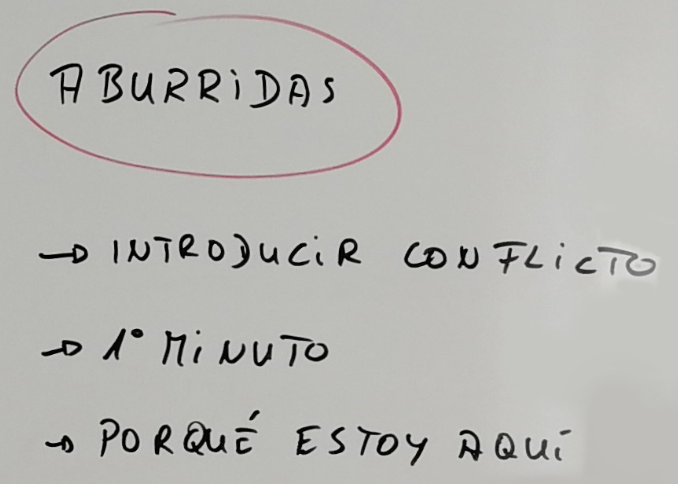 ABURRIDAS
→ INTRODUCIR CONFLICTO
→ 1° MINUTO
→ PORQUÉ ESTOY AQUÍ